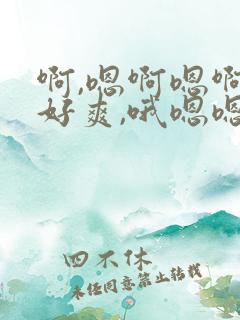 啊,嗯啊嗯啊
好爽,哦嗯嗯
四不休
未经同意禁止转载